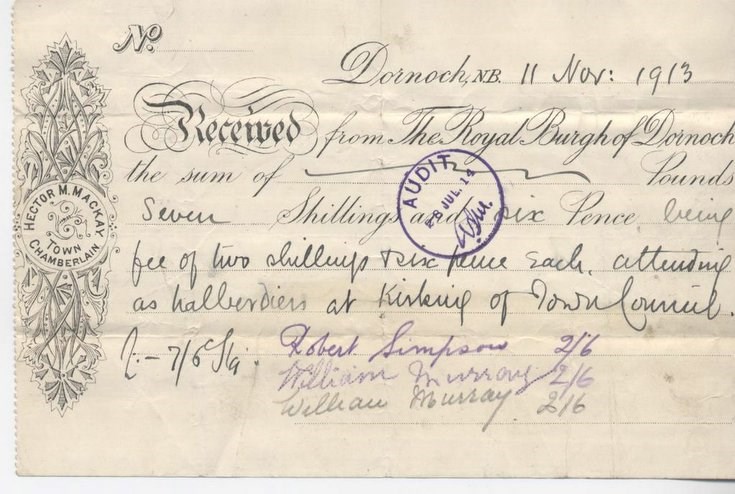 No.
Dornoch, N.B. 11 Nov: 1913
Received from The Royal Burgh of Dornoch
the sum of Pounds
Seven Shillings and six Pence being
fee of two shillings & six pence each, attending
as halberdiers at Kirking of Town Council.
£ - 7/6 Stg.
Robert Simpson 2/6
William Murray 2/6
William Murray 2/6
HECTOR M. MACKAY
TOWN
CHAMBERLAIN
AUDIT
28 JUL. 14